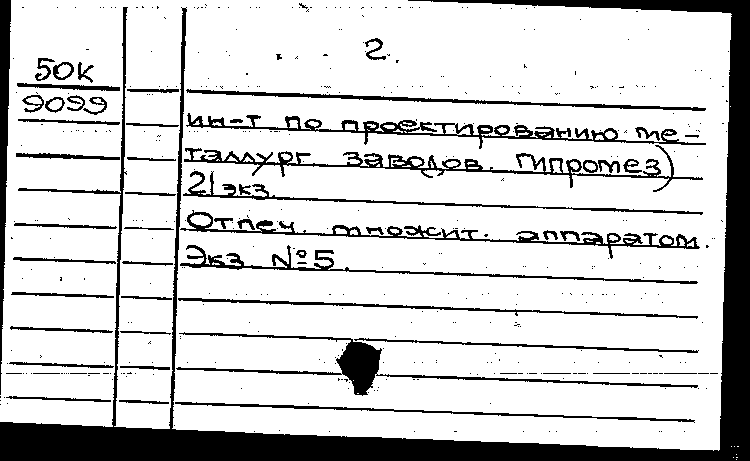 2.
50К
9099
ин-т по проектированию ме-
таллург. заводов. Гипромез)
21 экз.
Отпеч. множит. аппаратом.
Экз №5.